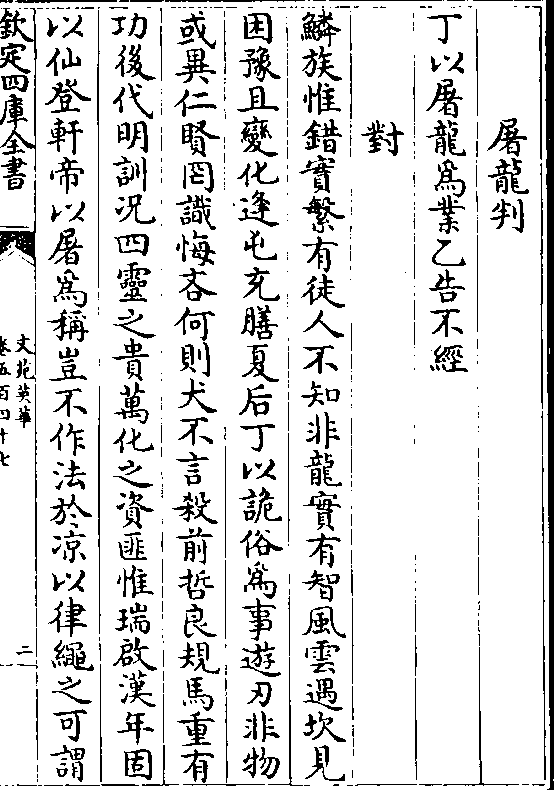 屠龍判
丁以屠龍爲業乙告不經
對
鱗族惟錯實繁有徒人不知非龍實有智風雲遇坎見
困豫且變化逢屯充膳夏后丁以詭俗爲事遊刃非物
或異仁賢罔識悔吝何則犬不言殺前哲良規馬重有
功後代明訓況四靈之貴萬化之資匪惟瑞啟漢年固
以仙登軒帝以屠爲稱豈不作法於凉以律繩之可謂
欽定四庫全書
文苑英華
卷五百四十七
二